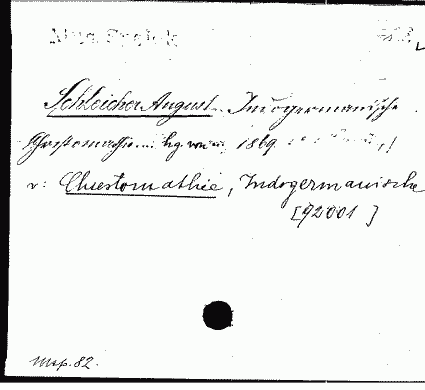 Schleicher August. Indogermanische
Chrestomathie... hg. von 1869
v: Chrestomathie, Indogermanische
[92001]
Map. 82.